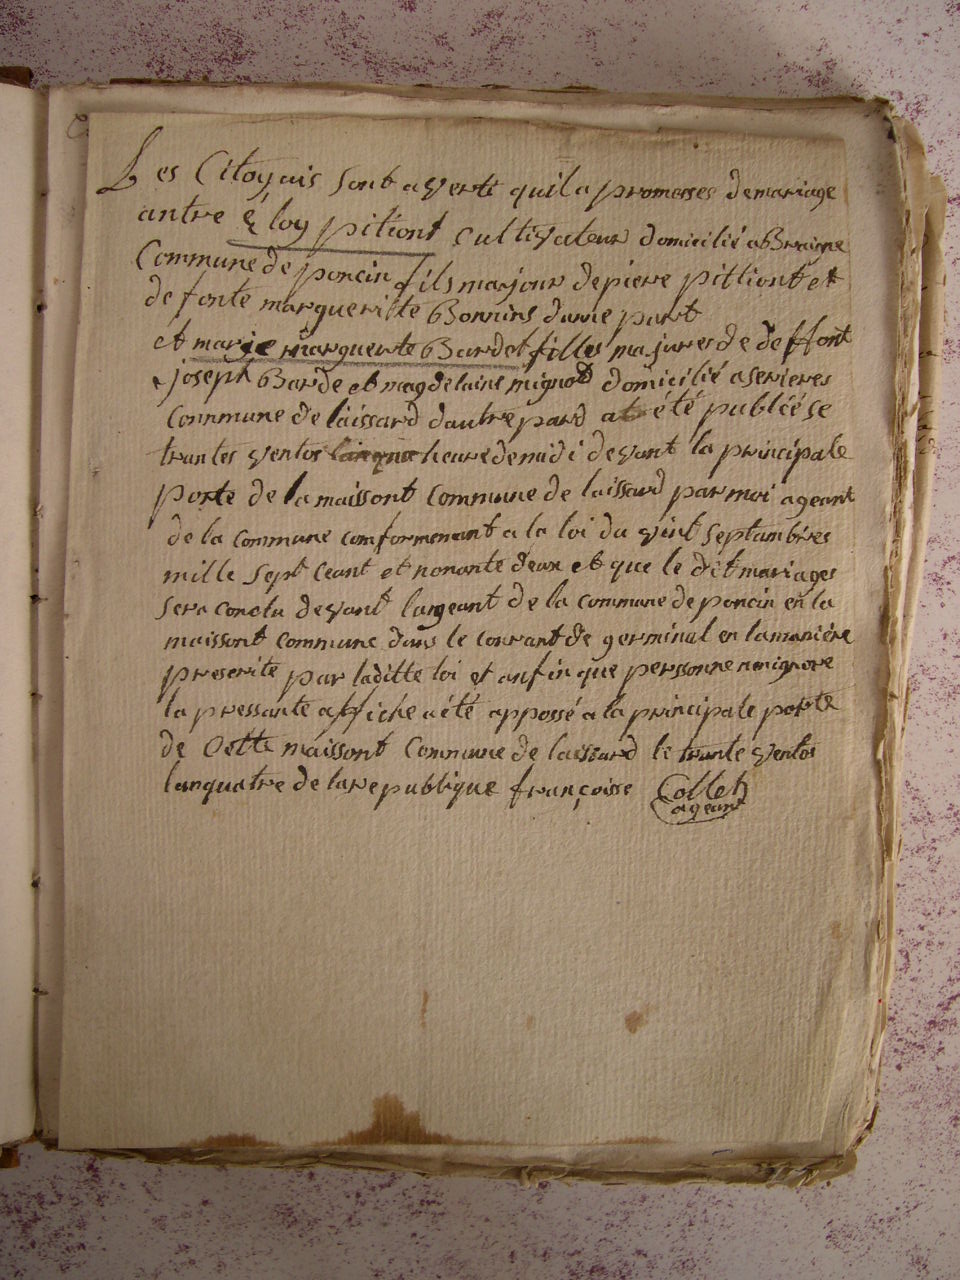 Les Citoyais sont averti quil a promesses demariage
antre éloy pitiont cultivateur domicilié a Braigne
Commune de poncin fils majour de piere pitliont et
de fonte margueritte Bonnins dunne part
et marie marguerite Bardet filles majures de deffont
joseph Barde et magdelaine mignot domicilié a serieres
Commune de laissard dautre pard at été publié se
trantes ventos heure de midi devant la principale
porte de la maissont commune de laissard par moi ageant
de la commune comformenant a la loi du vint septambres
mille sept ceant et nonante deux et que le dit mariages
sera conclu devant lageant de la commune de poncin en la
maissont commune dans le courrant de germinal en la manière
prescrite par laditte loi et anfin que perssonne nenignore
la pressante affiche a été appossé a la principale porte
de cette maissont Commune de laissard le trante ventos
lanquatre de la republique françoisse Collet
ageant